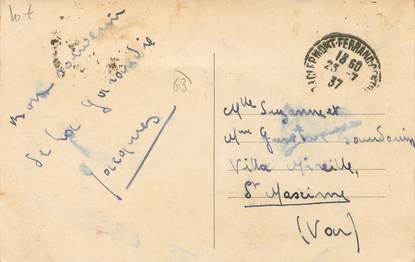 lot
Bon souvenir
de la
Jacques
63
CLERMONT-FERRAND
18 60
23 -7
37
Mlle Suzanne et
Mme Gustave Baudouin
Villa Mireille,
St Maxime
(Var)